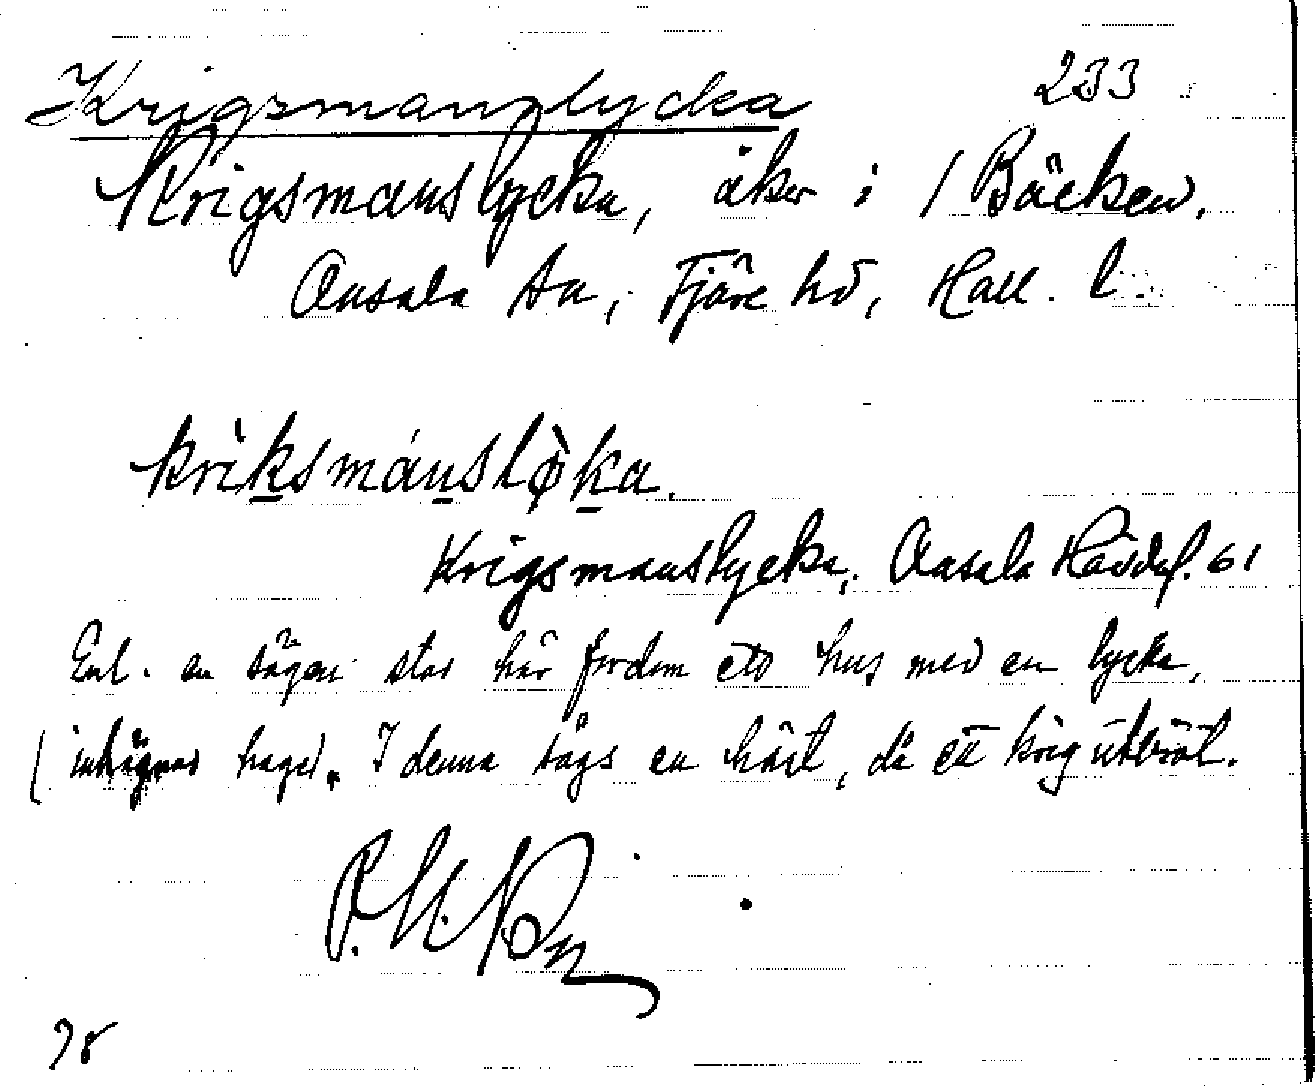 Krigsmanslycka 233
Krigsmanslycka, åker i / Bäcken,
Onsala sn, Fjäre hd, Hall. l.
krìksmánsløka.
Krigsmanslycka, Onsala 61
Enl. en sägen stod här fordom ett hus med en lycka,
( inhägnad hage). I denna sågs en häst, då ett krig utbröt.
78